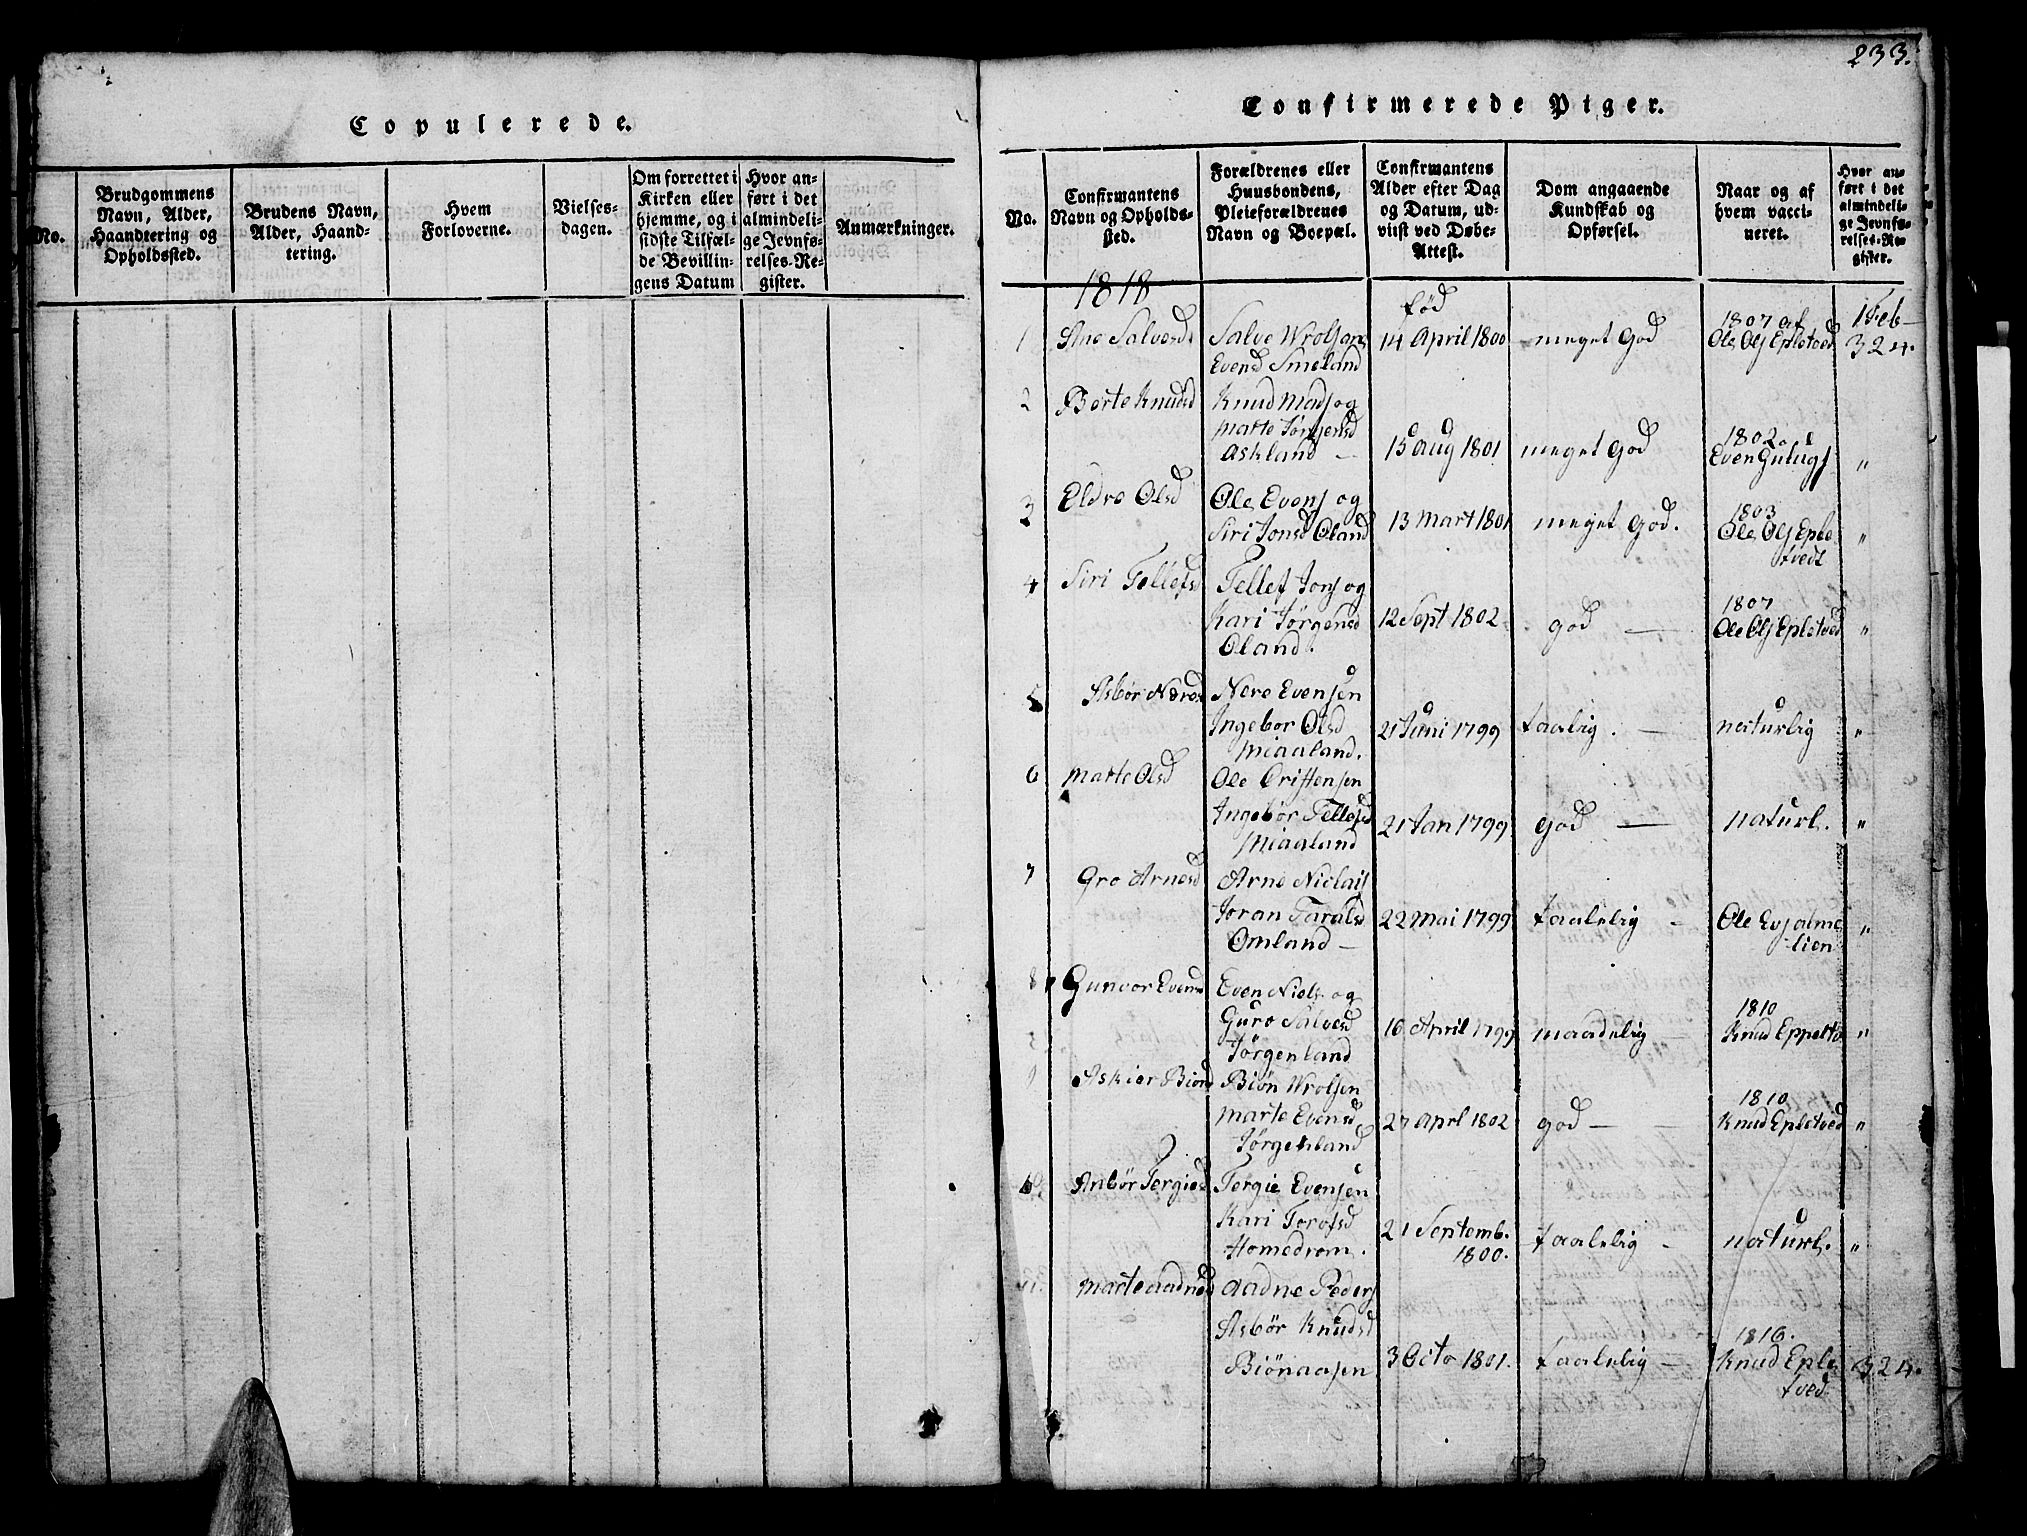 233.
Copulerede.
No.
Brudgommens
Navn, Alder,
Haandtering og
Opholdssted.
Brudens Navn,
Alder, Haand-
tering.
Hvem
Forloverne.
Vielses-
dagen.
Om forrettet i
Kirken eller
hjemme, og i
sidste Tilfæl-
de Bevillin-
gens Datum
Hvor an-
ført i det
almindeli-
ge Jevnfø-
relses-Re-
gister.
Anmærkninger.
Confirmerede Piger.
No.
Confirmantens
Navn og Opholds-
sted.
Forældrenes eller
Huusbondens,
Pleieforældrenes
Navn og Boepæl.
Confirmantens
Alder efter Dag
og Datum, ud-
viist ved Døbe-
Attest.
Dom angaaende
Kundskab og
Opførsel.
Naar og af
hvem vacci-
neret.
Hvor an-
ført i det
almindeli-
ge Jevnfø-
relses-Re-
gister.
1818
fød
1 Ane Salvesd Salve Wrolsen 14 April 1800 meget god 1807 af 1 Feb
Evensd Smeland Ole Ols Epletved 324.
2 Berte Knudsd Knud Mads og
Marte Jørgensd 15 Aug 1801 meget god 1802
Askland — Even Gulugs "
3 Eldre Olsd Ole Evens og
Siri Jonsd Oland 13 Mart 1801 meget god. 1803
Ole Ols Eple "
tvedt
4 Siri Tellefsd Tellef Jons og
Kari Jørgensd 12 Sept 1802 god — 1807
Oland. Ole Ols Epletved "
5 Asbør Neresd Nere Evensen
Ingebor Olsd 21 Juni 1799 taalig. — naturlig "
Miaaland.
6 Marte Olsd Ole Cristensen
Ingebør Tellefsd 21 Jan 1799 god — naturl. "
Miaaland
7 Gro Arnesd Arne Niclais
Joran Taralsd 22 Mai 1799 taalelig - Ole Evjeme "
Omland — lien
8 Gunvor Evens Even Niels og
Guro Salvesd 16 April 1799 maadelig - 1810
Jørgenland Knud Eppeltv "
9 Askier Biønd Biøn Wrolsen
Marte Evensd 27 Aprl 1802 god — 1810
Jørgenland Knud Epletved "
10 Anbør Tergiesd Tergie Evensen
Kari Torofsd 21 Septemb. taalelig - naturl. "
Homedrom. 1800.
11. Marte Aadnesd Aadne Peders
Asbør Knudsd 1816.
Biønaasen 3 Octo 1801. taalelig — Knud Eple 324.
tved